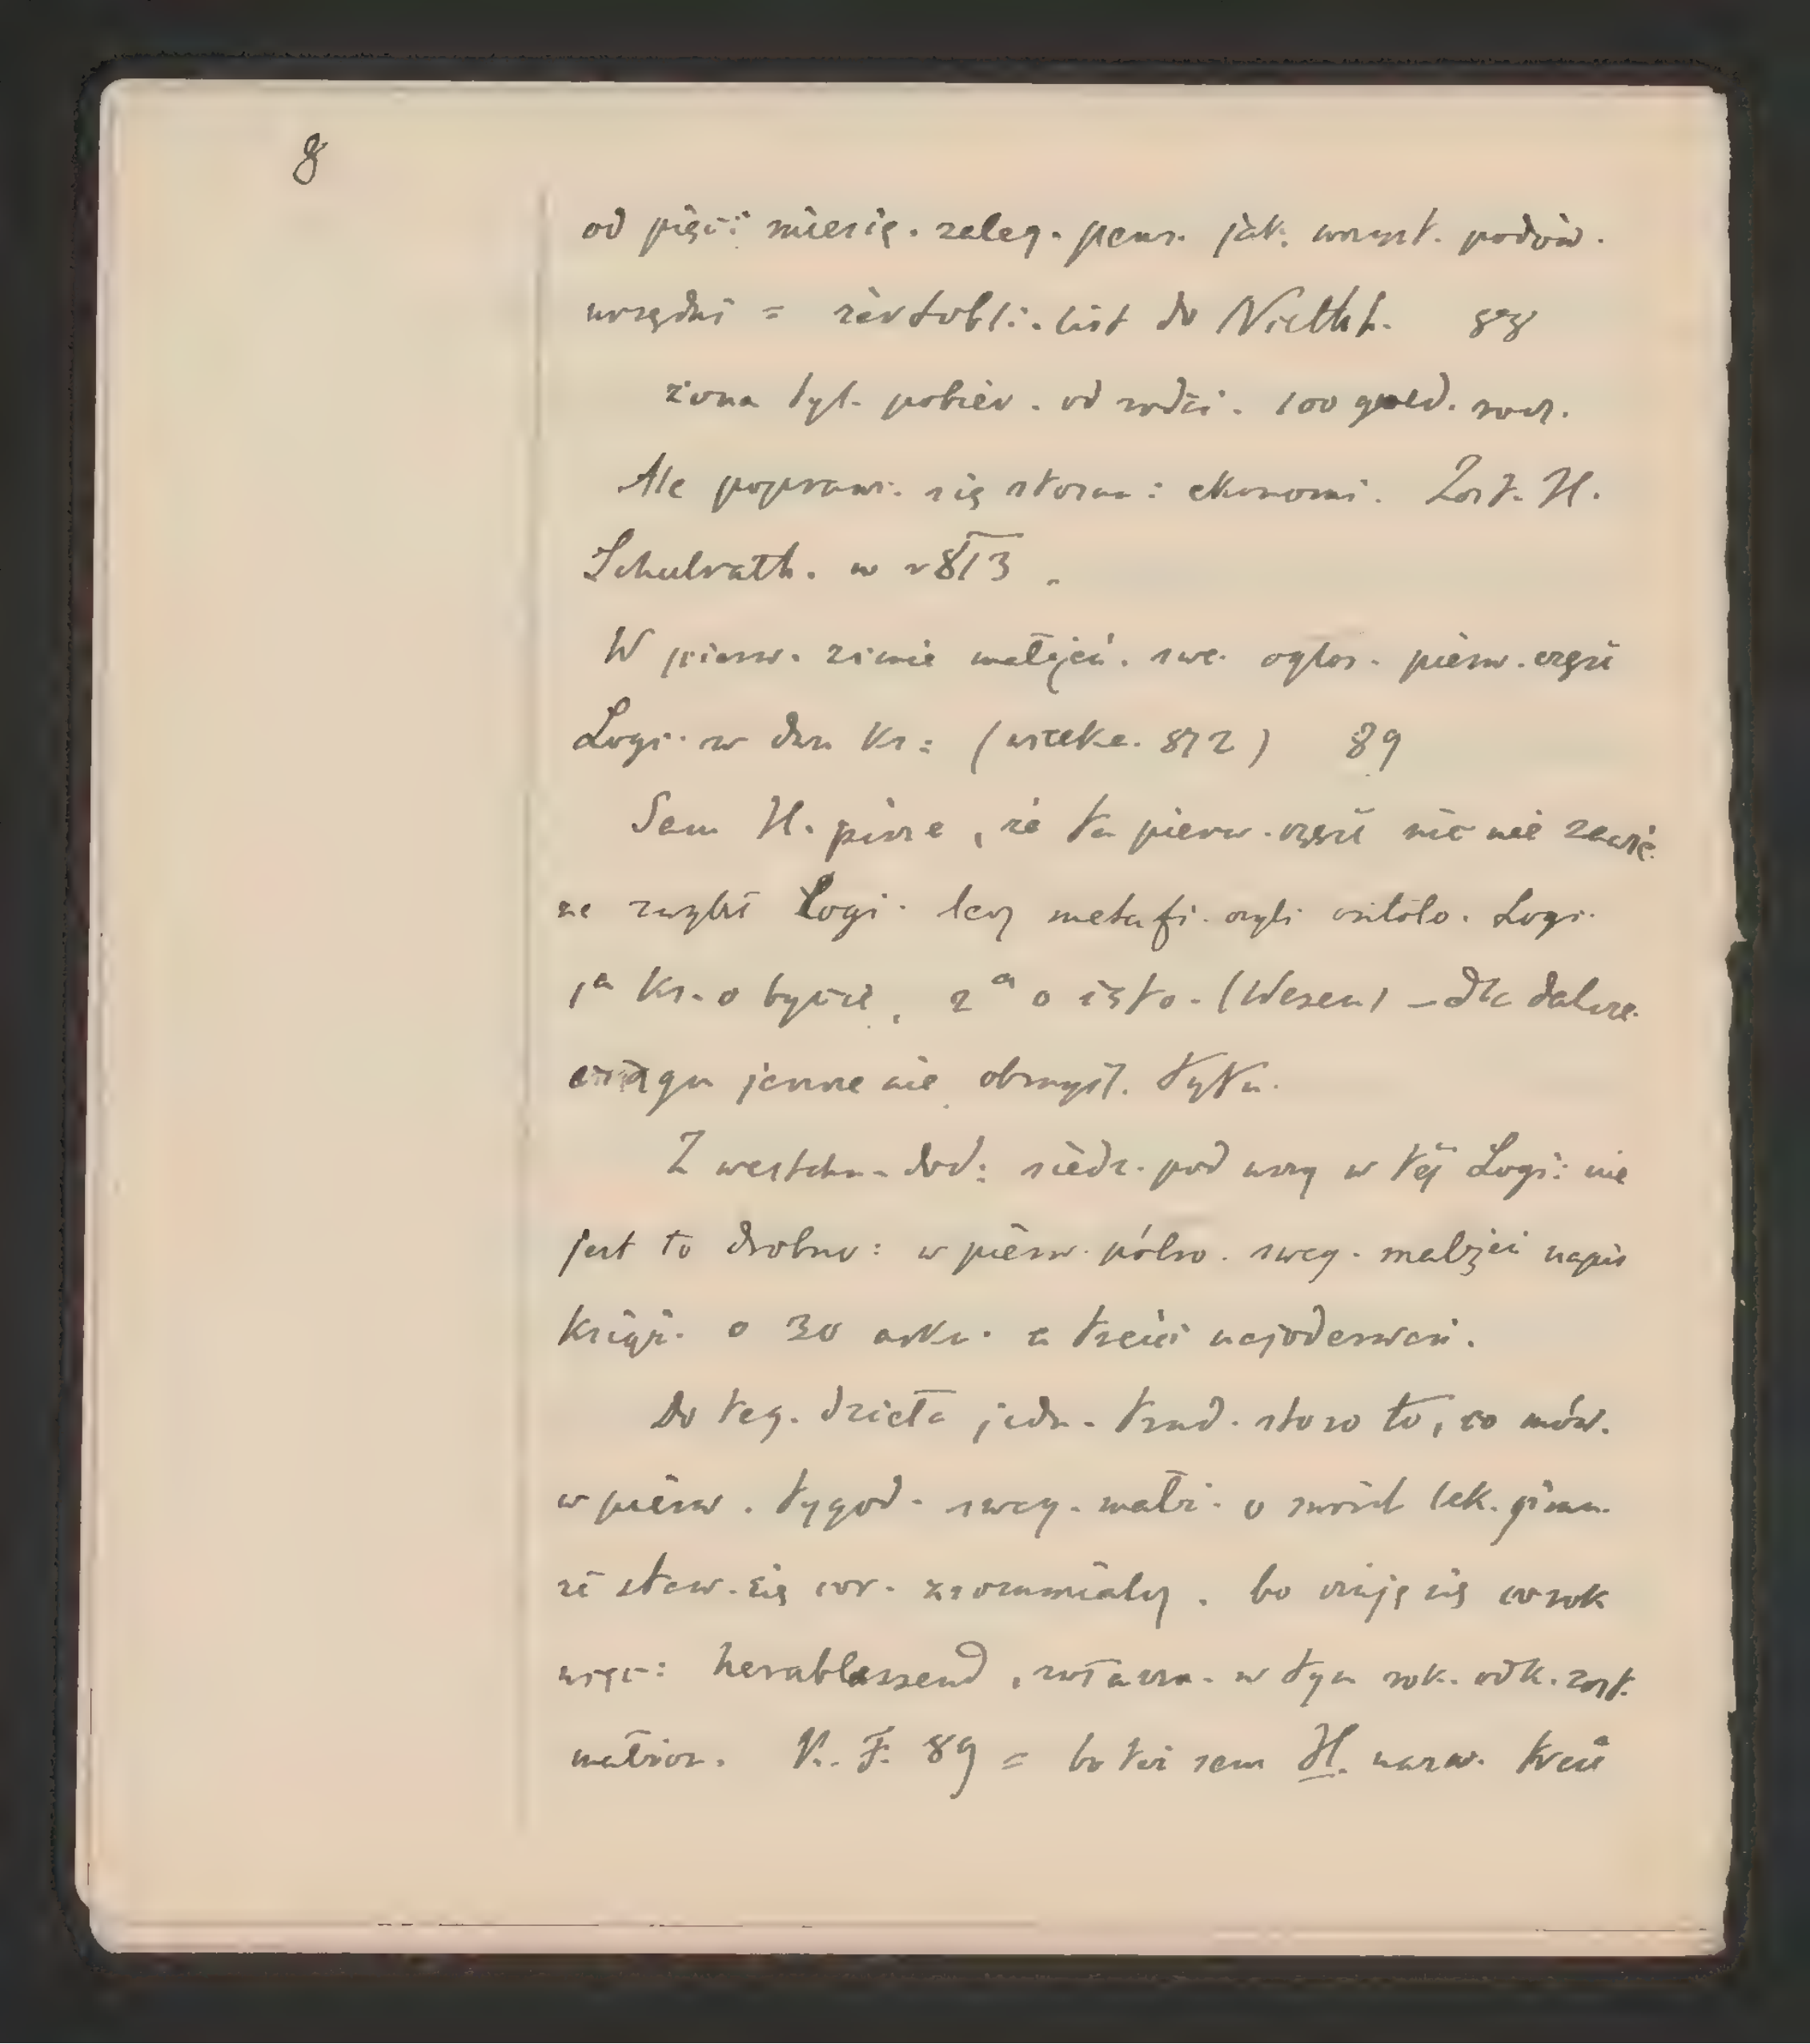 8
od pięci miesię. zaleg. pens. jak. wszyst. podów.
urzędni = żartobli. list do Nieth. 88
żona tyl. pobier. od rodzi. 100 guld. rocz.
Ale popraw. się stosun: ekonomi. Zost. H.
Schulrath. w r 813.
W pierw. zimie małżeń. swe. ogłos. pierw. część
Logi. w dwu ks: (wielke. 812) 89
Sam H. pisze, że ta pierw. część nic nie zawie.
ze zwykł Logi. lecz metafi. czyli ontolo. Logi.
1a Ks. o bycie, 2a o isto. (Wesen) – dla dalsze.
ciągu jeszcze nie obmyśl. tytu.
Z westchn. dod: siedz. pod uszy w téj Logi: nie
jest to drobno: w pierw. półro. sweg. małżeń napis
książ. o 30 arku. a treści najoderwań.
Do teg. dzieła jedn. trud. stoso to, co mów.
w pierw. tygod. sweg. małż. o swoich lek. gimn.
że staw. się cor. zrozumialsz. bo czuję się co rok
więc: herablassend, zwłaszcza. w tym rok. odk. zost.
małżon. K. F. 89 = bo też sam H. nazw. treść